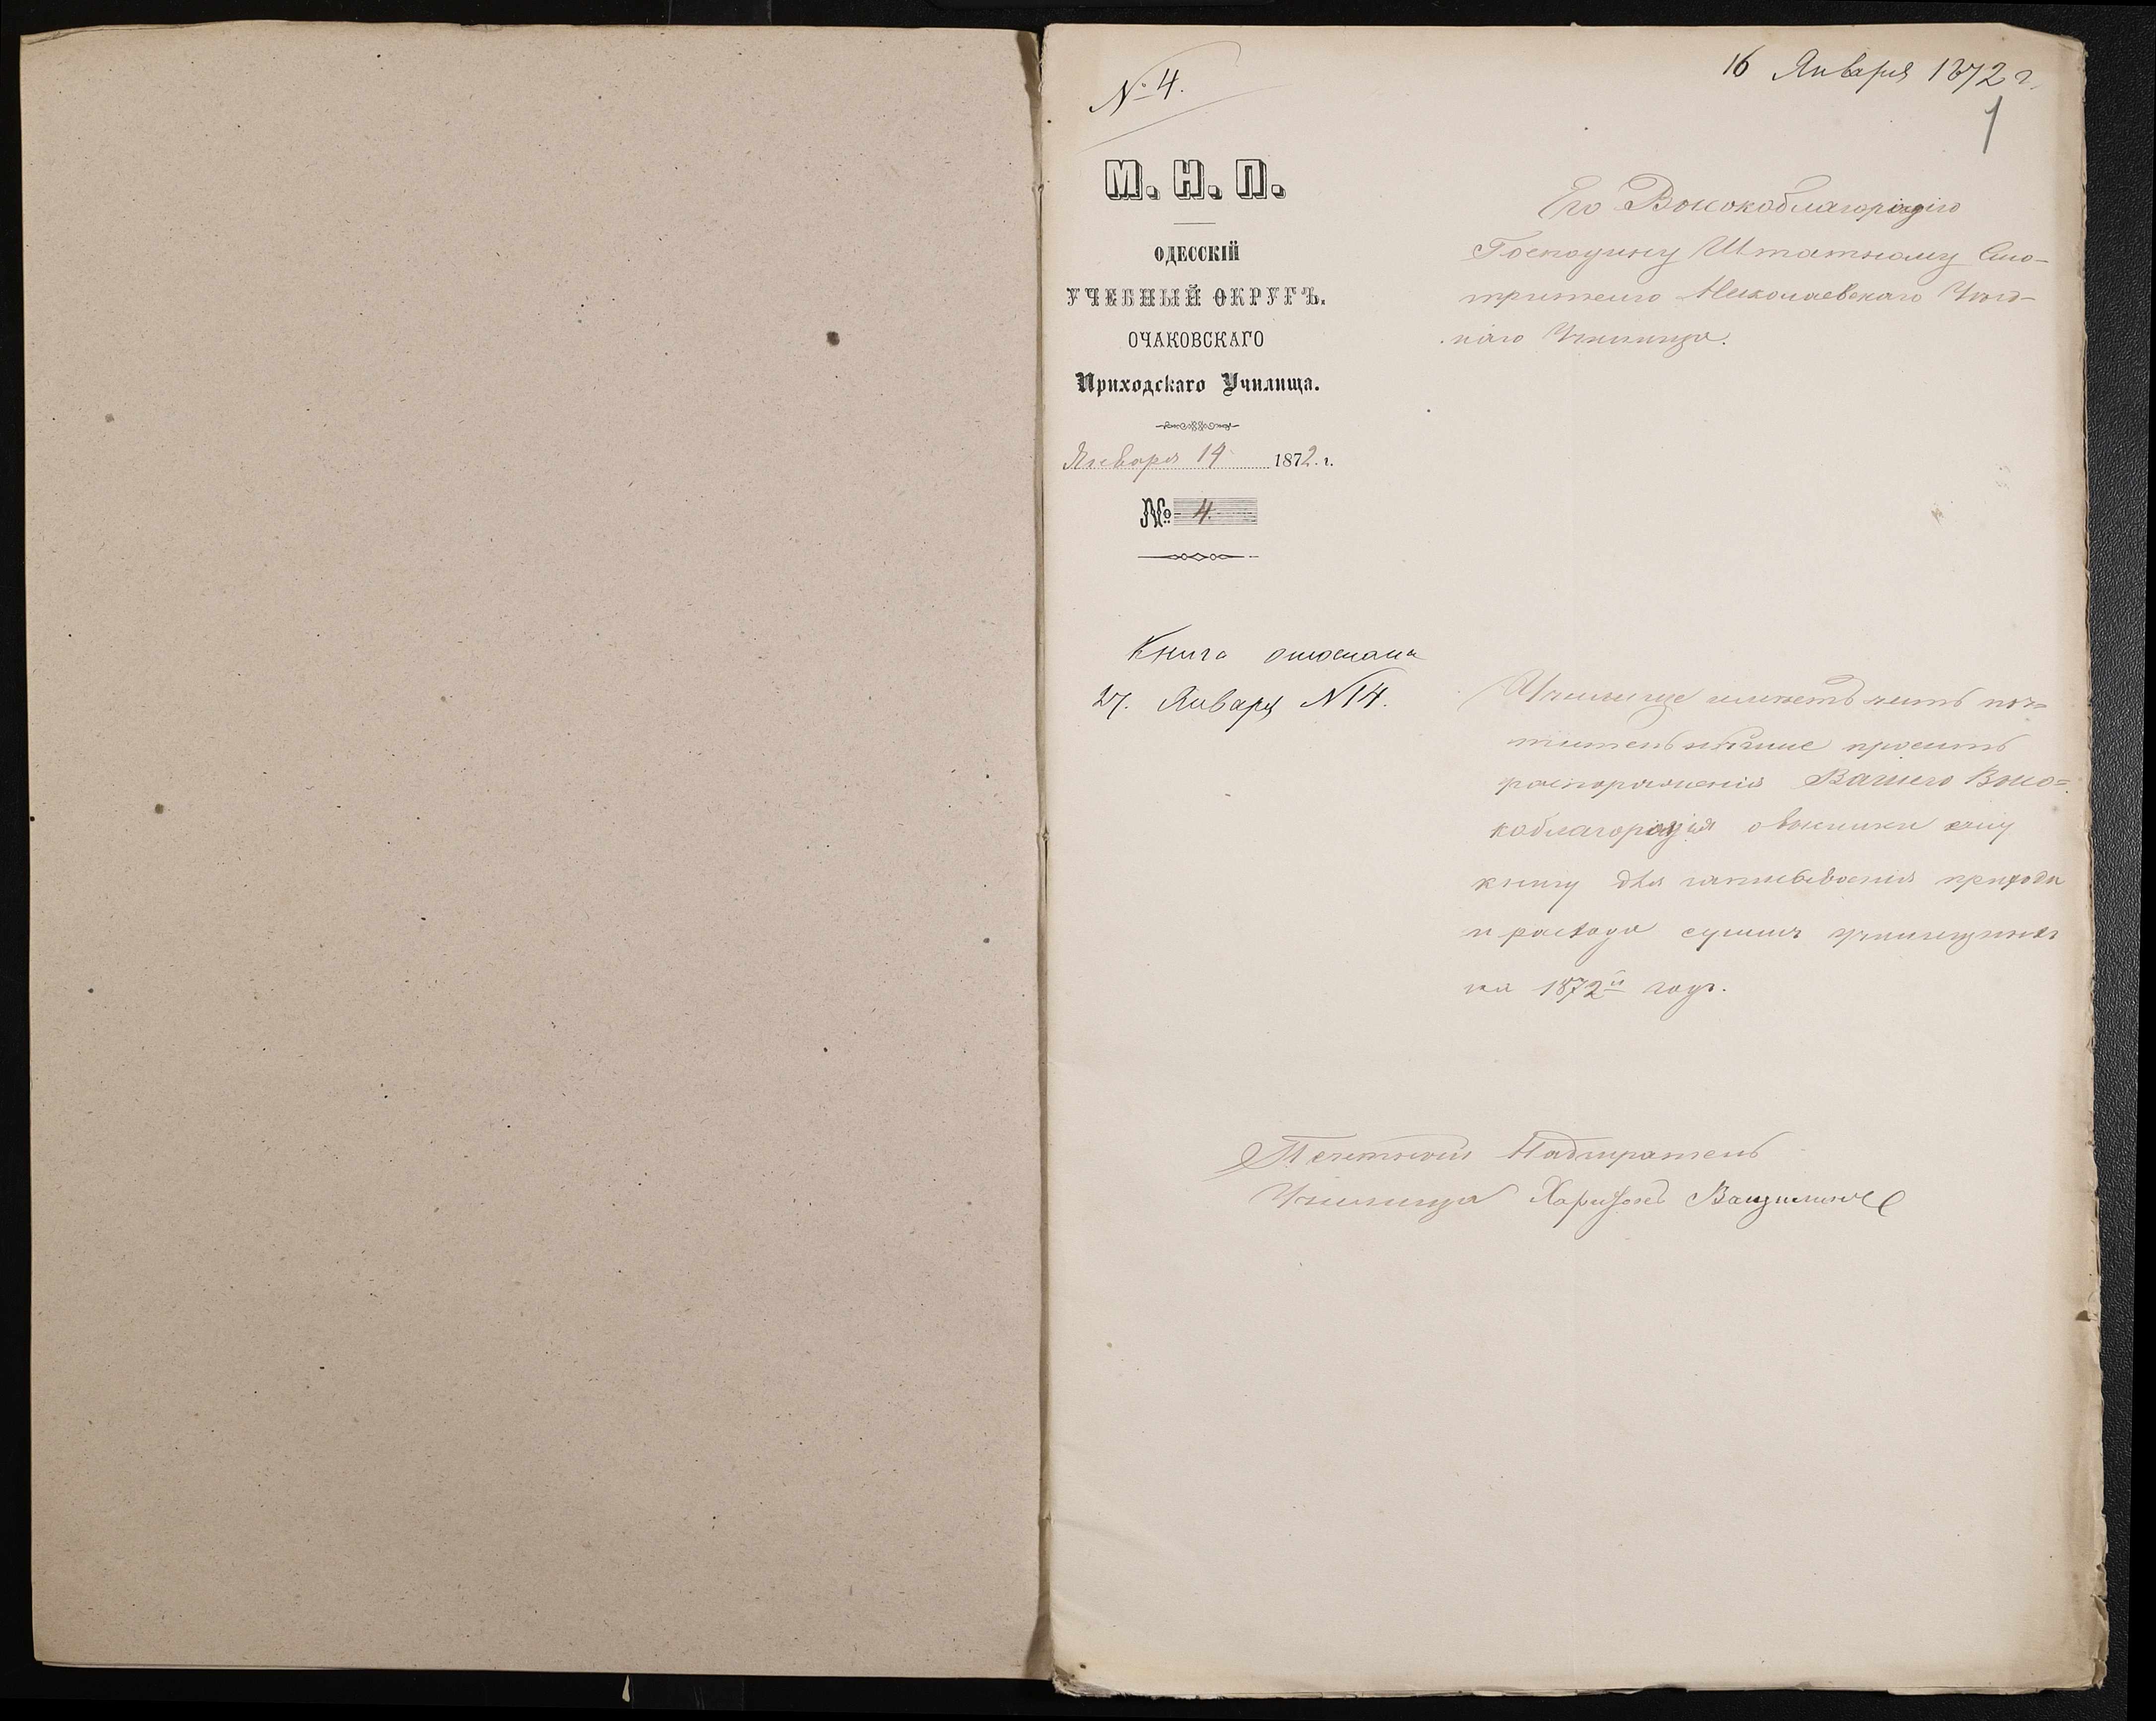 № 4.
16 Января 1872 г.
1
М. Н. П.
ОДЕССКІЙ
УЧЕБНЫЙ ОКРУГЪ.
ОЧАКОВСКАГО
Приходскаго Училища.
Января 14 1872. г.
№ 4.
Его Высокоблагородію
Господину Штатному Смо-
трителю Николаевскаго Уѣзд-
наго Училища.
Книга отослана
27. Января N 14.
Училище имѣетъ честь поч-
тительнѣйше просить
распоряженія Вашего Высо-
коблагородія о высылки ему
книгу для записыванія прихода
и расхода суммъ училищныхъ
на 1872й годъ.
Почетный Надзиратель
Училища Харитонъ